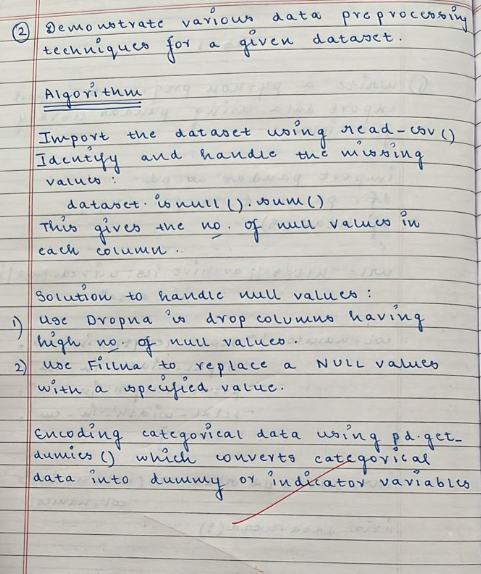 ② Demonstrate various data preprocessing
techniques for a given dataset.
Algorithm
Import the dataset using read-csv()
Identify and handle the missing
values:
dataset.isnull().sum()
This gives the no. of null values in
each column.
Solution to handle null values:
1) Use Dropna is drop columns having
high no. of null values.
2) Use Fillna to replace a NULL values
with a specified value.
Encoding categorical data using pd.get_
dumies() which converts categorical
data into dummy or indicator variables